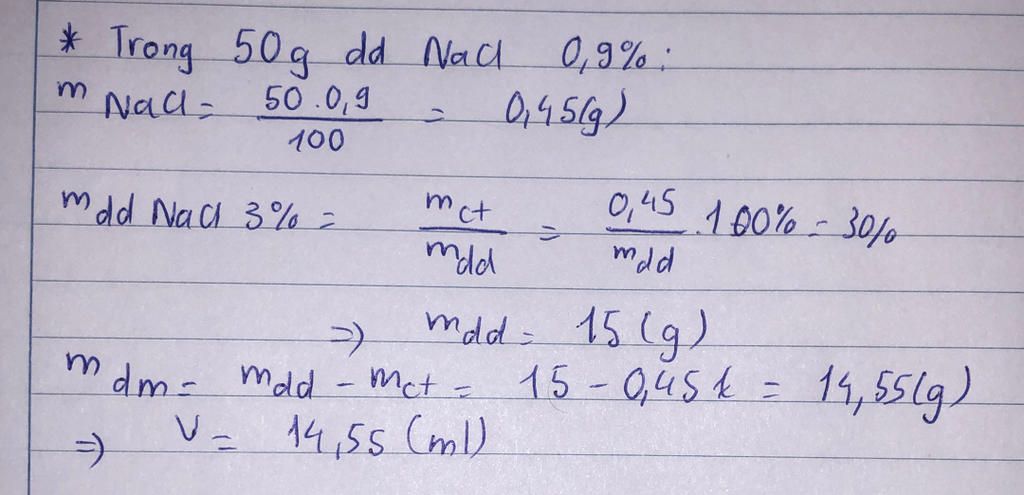 * Trong 50g dd NaCl 0,9%:
m NaCl = 50.0,9 / 100 = 0,45(g)
m dd NaCl 3% = mct / mdd = 0,45 / mdd . 100% = 3%
=) mdd = 15 (g)
m dm = mdd - mct = 15 - 0,45 = 14,55(g)
=) V = 14,55 (ml)